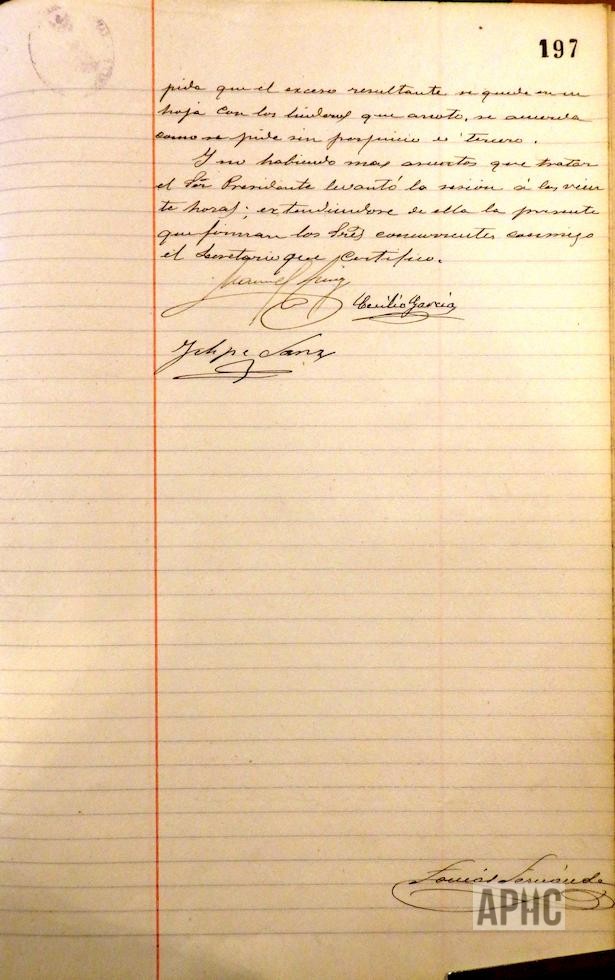 197
pida que el exceso resultante se quede en su
hoja con los linderos que anoto, se acuerda
como se pide sin perjuicio de tercero.
Y no habiendo mas asuntos que tratar
el Sor Presidante levantó la sesion á las vein
te horas; extendiendose de ella la presente
que forman los Sres concurrentes conmigo
el Secretario que certifico.
Manuel
Cecilio García
Felipe Sanz
Fernánde
APHC